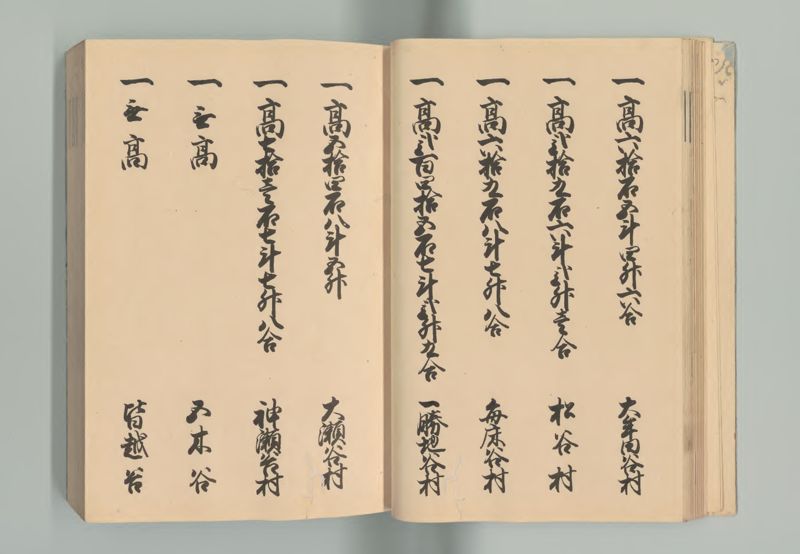 一高六拾石五斗四升六合　大牟田谷村
一高弐拾九石六斗弐升壱合　松谷村
一高六拾九石八斗七升八合　毎床谷村
一高弐百四拾五石七斗弐升九合　一勝地谷村
一高五拾四石八斗五升　大瀬谷村
一高七拾壱石七斗七升八合　神瀬谷村
一無高　五木谷
一無高　皆越谷